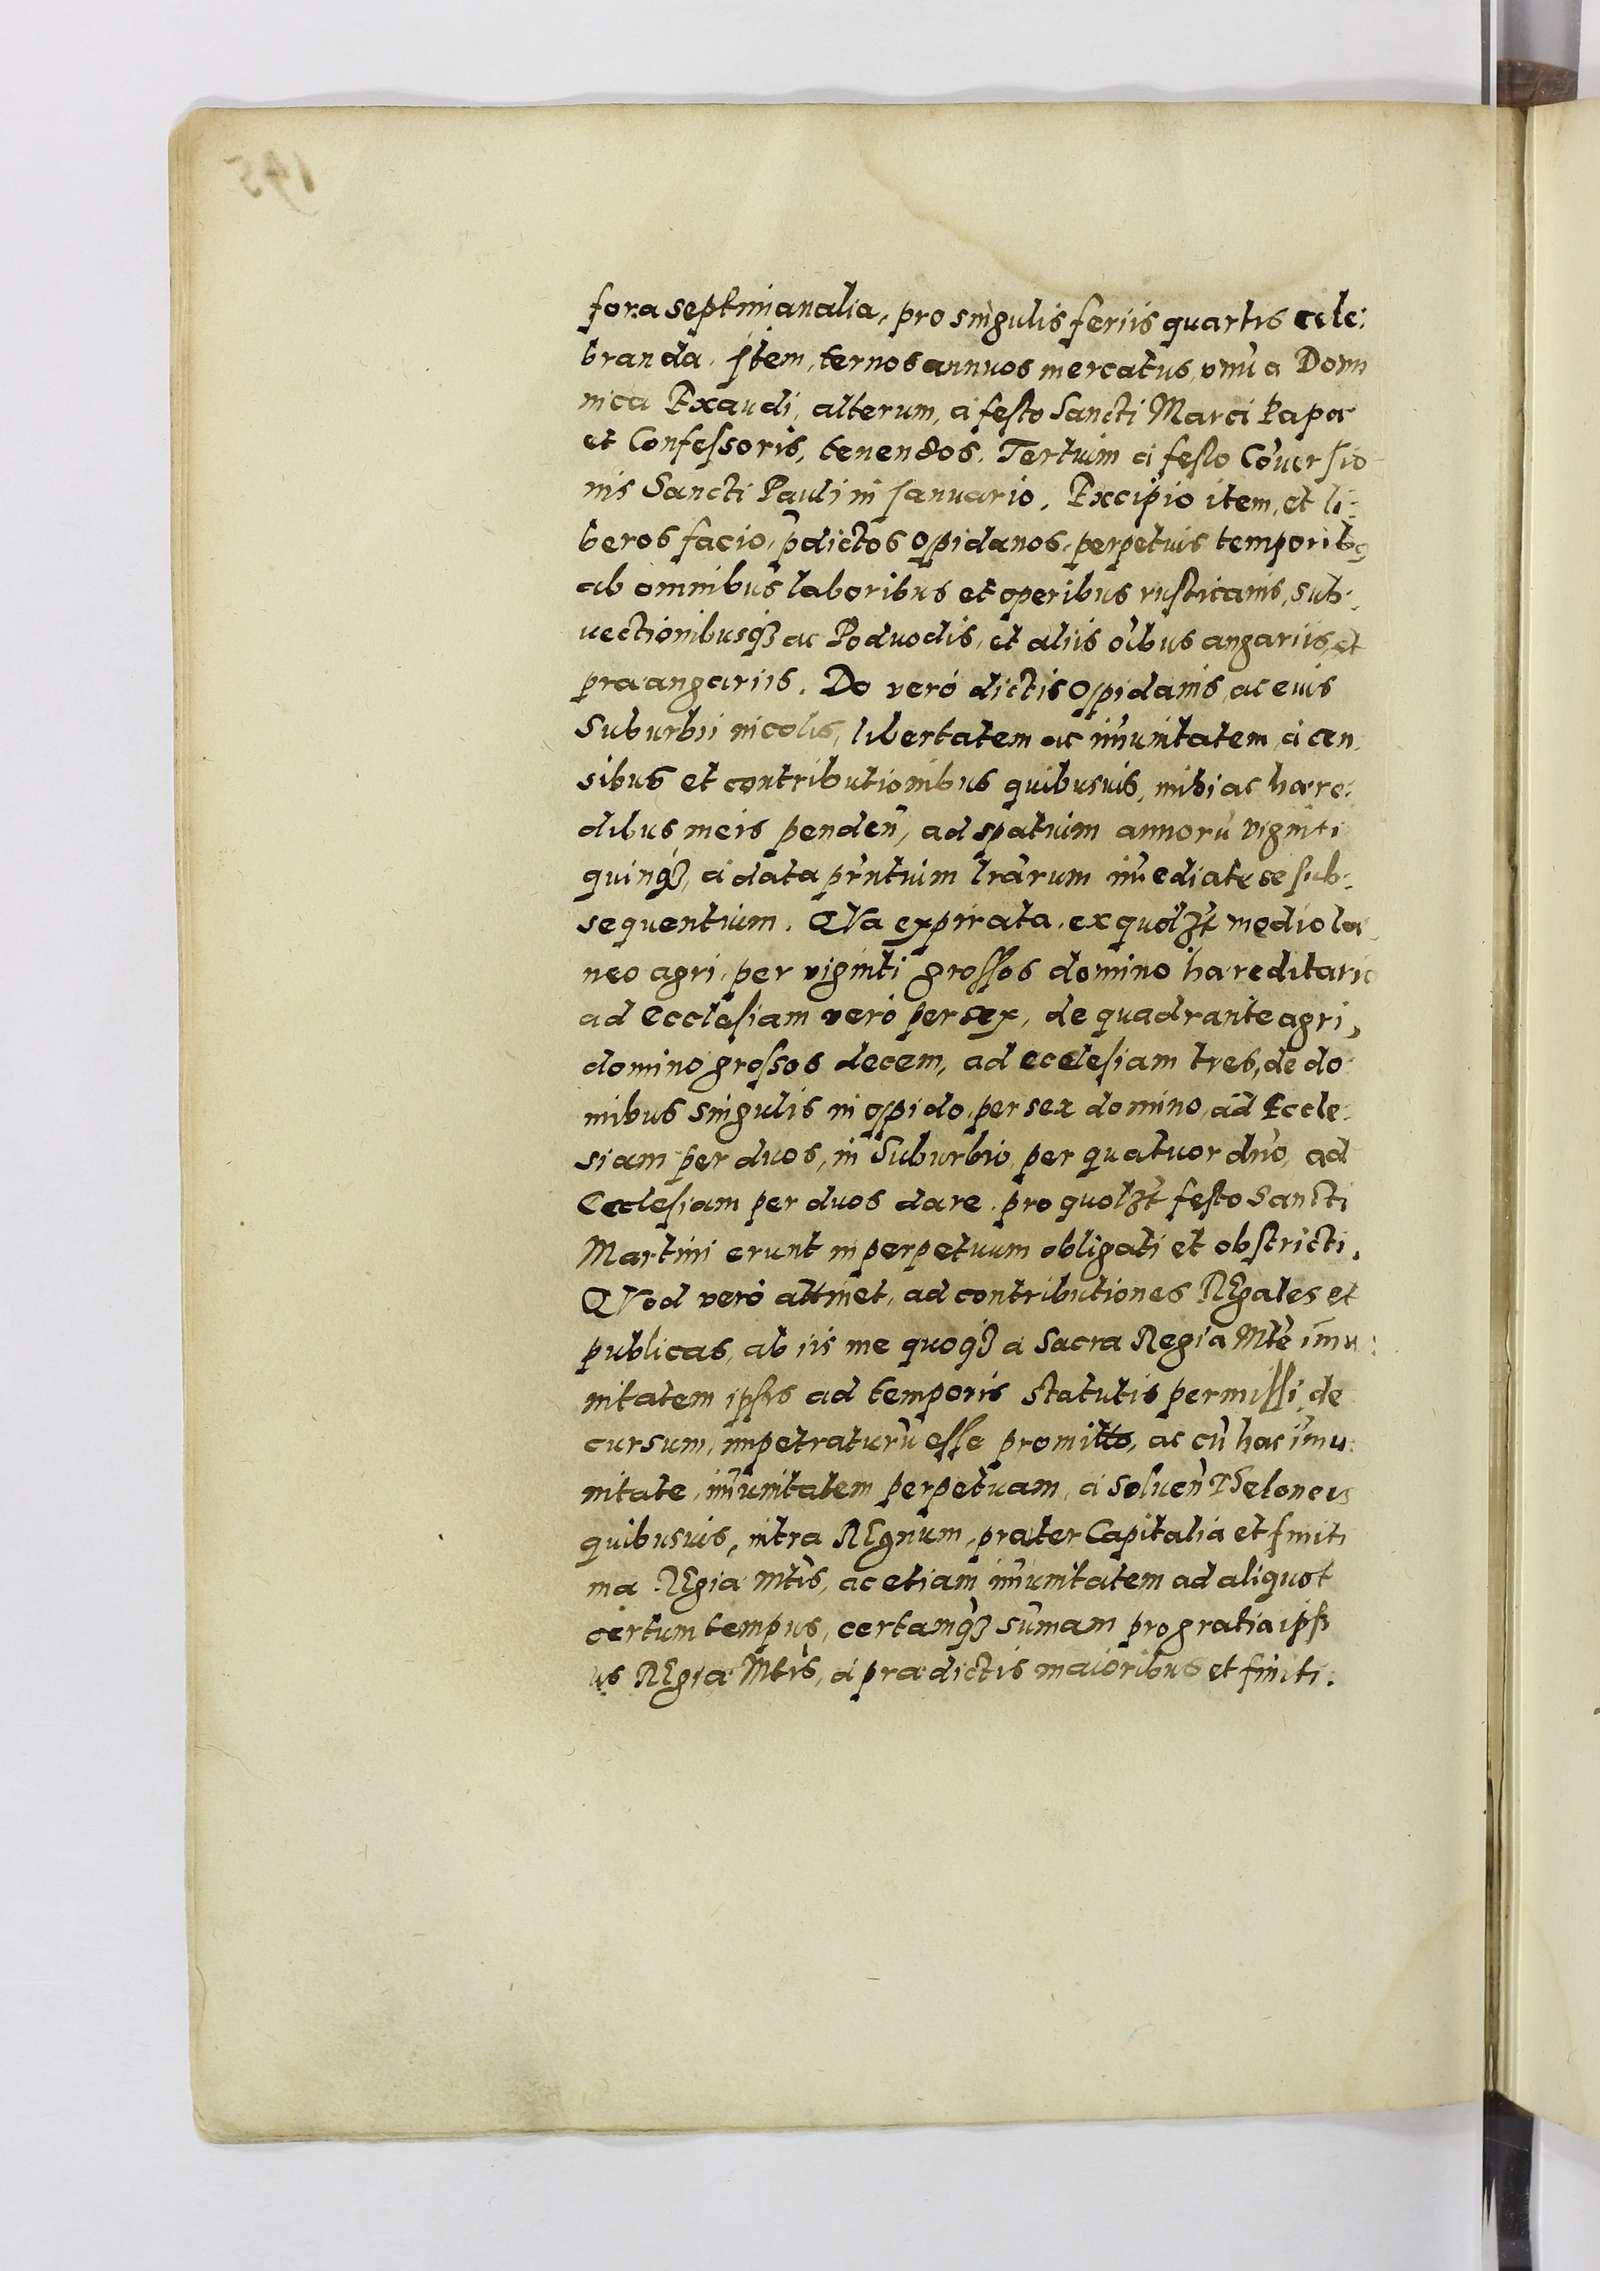 fora septimanalia, pro singulis feriis quartis cele:
branda. Item, ternos annuos mercatus, vnū a Domi
nica Exaudi, alterum, à festo Sancti Marci Papæ
et Confessoris, tenendos. Tertium à festo Cōuersio
nis Sancti Pauli in Ianuario. Excipio item, et li:
beros facio, p̄dictos opidanos, perpetuis temporibꝫ
ab omnibus laboribus et operibus rusticanis, sub:
uectionibusqꝫ ac Podvodis, et aliis oībus angariis, et
præangariis. Do verò dictis opidanis, ac eius
Suburbii incolis, libertatem ac im̄unitatem, à cen
sibus et contributionibus quibusuis, mihi ac hære:
dibus meis penden̄, ad spatium annorū viginti
quinqꝫ, à data pn̄tium lrārum im̄ediate se sub:
sequentium. QVa expirata, ex quolꝫt medio la
neo agri, per viginti grossos domino hæreditario
ad Ecclesiam verò per sex, de quadrante agri,
domino grossos decem, ad ecclesiam tres, de do
mibus singulis in opido, per sex domino, ad Eccle:
siam per duos, in Suburbio, per quatuor dn̄o, ad
Ecclesiam per duos dare, pro quolꝫt festo Sancti
Martini erunt in perpetuum obligati et obstricti.
QVod verò attinet, ad contributiones REgales et
publicas, ab iis me quoqꝫ a Sacra Regia Mtē im̄u:
nitatem ipsis ad temporis statutis permissi, de
cursum, impetraturū esse promitto, ac cū hac im̄u:
nitate, im̄unitatem perpetuam, à soluen̄ Theloneis
quibusuis, intra REgnum, præter Capitalia et finiti
ma REgiæ Mtis, ac etiam im̄unitatem ad aliquot
certum tempus, certamqꝫ sum̄am pro gratia ipsi
us REgiæ Mtis, à prædictis maioribus et finiti: